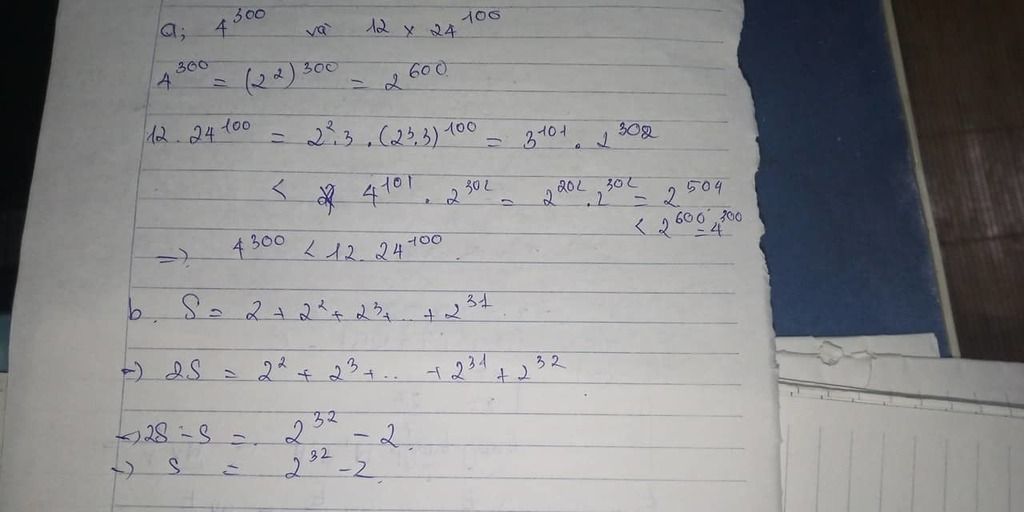 a; 4^300 và 12 × 24^100
4^300 = (2^2)^300 = 2^600
12.24^100 = 2^2.3.(2^3.3)^100 = 3^101.2^302
< 4^101.2^302 = 2^202.2^302 = 2^504
< 2^600 = 4^300
=> 4^300 < 12.24^100
b. S = 2 + 2^2 + 2^3 + .. + 2^31
-> 2S = 2^2 + 2^3 + .. + 2^31 + 2^32
-> 2S - S = 2^32 - 2.
-> S = 2^32 - 2.